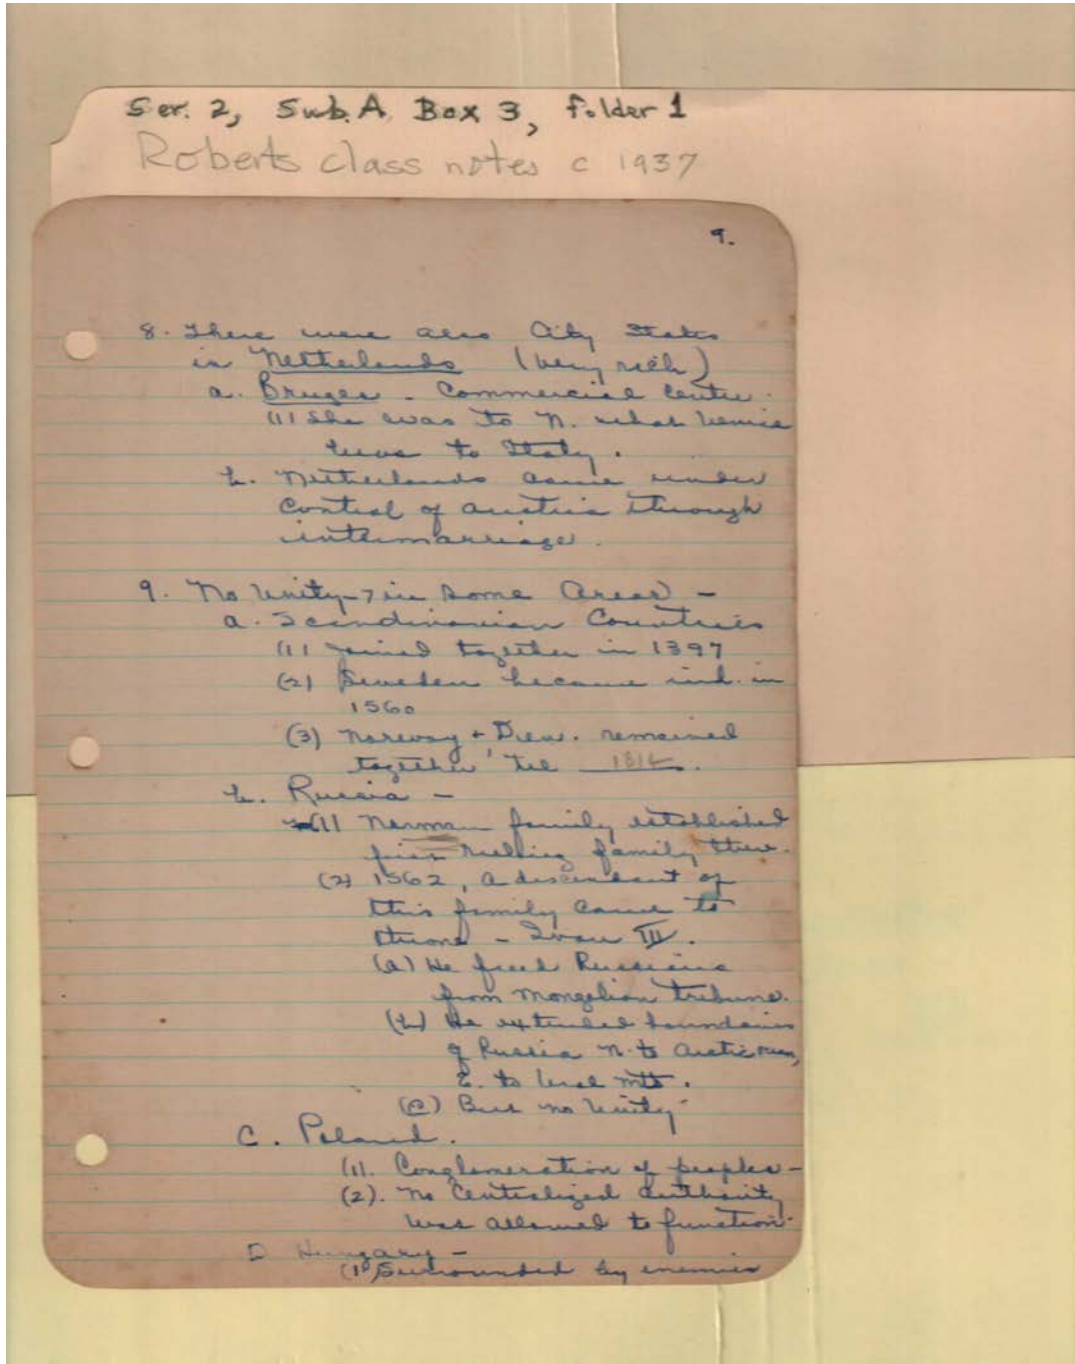 Ser. 2, Sub. A Box 3, folder 1
Roberts class notes c 1937
9.
8. There were also City States
in Netherlands (very rich)
a. Bruges - Commercial centre.
(1) She was to N. what Venice
was to Italy.
b. Netherlands came under
control of Austria through
intermarriage.
9. No Unity - in some Areas -
a. Scandinavian Countries
(1) Joined together in 1397
(2) Sweden became ind. in
1560
(3) Norway + Den. remained
together 'til 1814.
b. Russia -
(1) Norman family established
first ruling family there.
(2) 1562, A descendant of
this family came to
throne - Ivan III.
(a) He freed Russians
from Mongolian tribune.
(b) He extended boundaries
of Russia N. to Arctic
E. to Ural Mts.
(c) But no Unity
C. Poland.
(1). Conglomeration of peoples -
(2). No Centralized Authority
was allowed to function.
D Hungary -
(1) Surrounded by enemies